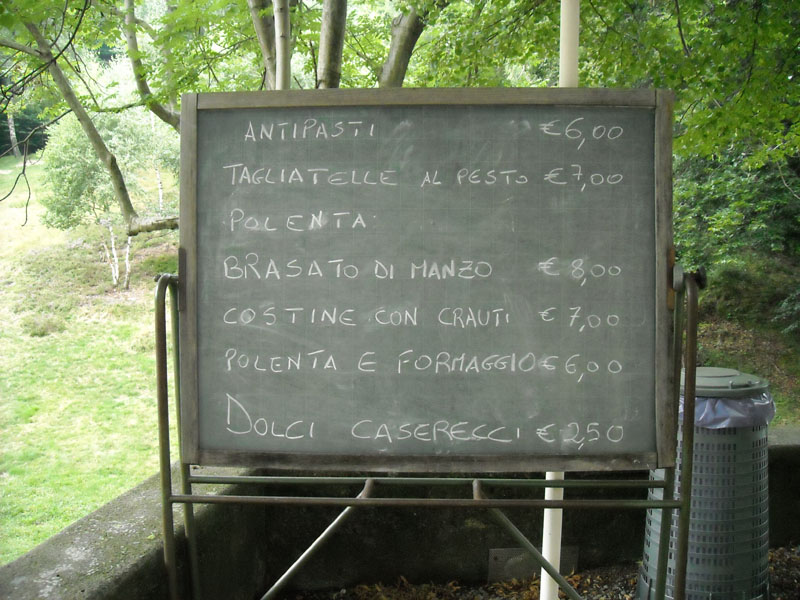 ANTIPASTI €6,00
TAGLIATELLE AL PESTO €7,00
POLENTA:
BRASATO DI MANZO €8,00
COSTINE CON CRAUTI €7,00
POLENTA E FORMAGGIO €6,00
DOLCI CASERECCI €2,50